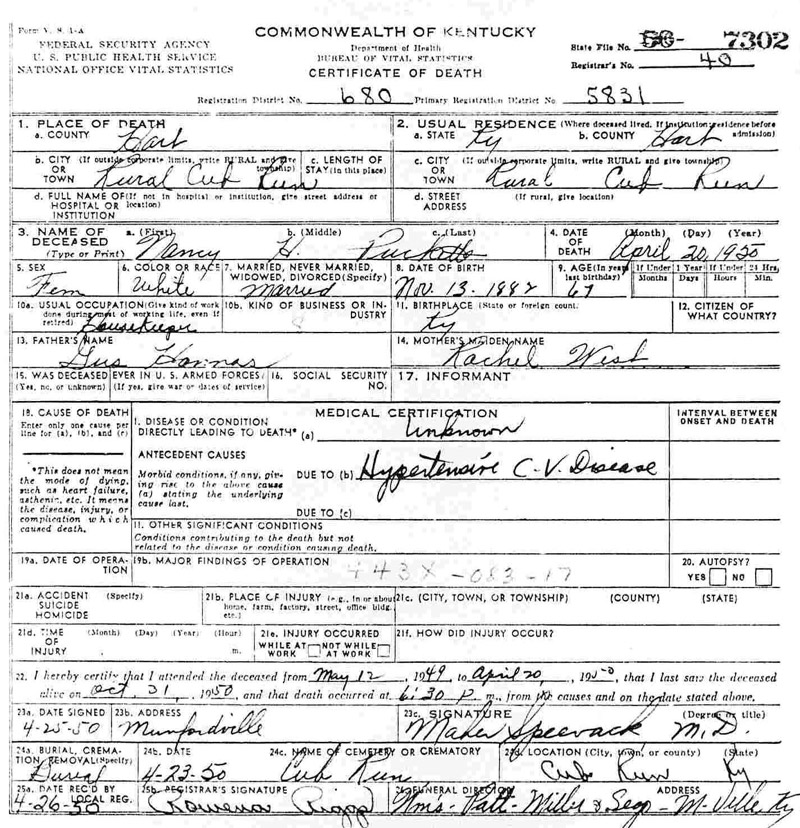 Form V. S. 1-A
FEDERAL SECURITY AGENCY
U. S. PUBLIC HEALTH SERVICE
NATIONAL OFFICE VITAL STATISTICS
COMMONWEALTH OF KENTUCKY
Department of Health
BUREAU OF VITAL STATISTICS
CERTIFICATE OF DEATH
State File No. 50- 7302
Registrar's No. 40
Registration District No. 680 Primary Registration District No. 5831
1. PLACE OF DEATH
a. COUNTY Hart
2. USUAL RESIDENCE (Where deceased lived. If institution: residence before admission)
a. STATE Ky b. COUNTY Hart
b. CITY (If outside corporate limits, write RURAL and give township) OR TOWN Rural Cub Run
c. LENGTH OF STAY (in this place)
c. CITY (If outside corporate limits, write RURAL and give township) OR TOWN Rural Cub Run
d. FULL NAME OF (If not in hospital or institution, give street address or location) HOSPITAL OR INSTITUTION
d. STREET ADDRESS (If rural, give location)
3. NAME OF DECEASED (Type or Print) a. (First) Nancy b. (Middle) H. c. (Last) Puckett
4. DATE OF DEATH (Month) (Day) (Year) April 20, 1950
5. SEX Fem
6. COLOR OR RACE White
7. MARRIED, NEVER MARRIED, WIDOWED, DIVORCED (Specify) Married
8. DATE OF BIRTH Nov. 13. 1882
9. AGE (In years last birthday) 67 If Under 1 Year Months Days If Under 24 Hrs. Hours Min.
10a. USUAL OCCUPATION (Give kind of work done during most of working life, even if retired) Housekeeper
10b. KIND OF BUSINESS OR INDUSTRY
11. BIRTHPLACE (State or foreign count. Ky
12. CITIZEN OF WHAT COUNTRY?
13. FATHER'S NAME Gus
14. MOTHER'S MAIDEN NAME Rachel West
15. WAS DECEASED EVER IN U. S. ARMED FORCES? (Yes, no, or unknown) (If yes, give war or dates of service)
16. SOCIAL SECURITY NO.
17. INFORMANT
18. CAUSE OF DEATH
Enter only one cause per line for (a), (b), and (c)
*This does not mean the mode of dying, such as heart failure, asthenia, etc. It means the disease, injury, or complication which caused death.
MEDICAL CERTIFICATION
INTERVAL BETWEEN ONSET AND DEATH
I. DISEASE OR CONDITION DIRECTLY LEADING TO DEATH* (a) Unknown
ANTECEDENT CAUSES
Morbid conditions, if any, giving rise to the above cause (a) stating the underlying cause last.
DUE TO (b) Hypertensive C-V. Disease
DUE TO (c)
II. OTHER SIGNIFICANT CONDITIONS
Conditions contributing to the death but not related to the disease or condition causing death.
19a. DATE OF OPERATION
19b. MAJOR FINDINGS OF OPERATION
443X-083-17
20. AUTOPSY? YES NO
21a. ACCIDENT SUICIDE HOMICIDE (Specify)
21b. PLACE OF INJURY (e.g., in or about home, farm, factory, street, office bldg. etc.)
21c. (CITY, TOWN, OR TOWNSHIP) (COUNTY) (STATE)
21d. TIME OF INJURY (Month) (Day) (Year) (Hour) m.
21e. INJURY OCCURRED WHILE AT WORK NOT WHILE AT WORK
21f. HOW DID INJURY OCCUR?
22. I hereby certify that I attended the deceased from May 12, 1949, to April 20, 1950, that I last saw the deceased
alive on Oct. 31, 1950, and that death occurred at 6:30 P m., from the causes and on the date stated above.
23a. DATE SIGNED 4-25-50
23b. ADDRESS Munfordville
23c. SIGNATURE (Degree or title) Maher Speevack M.D.
24a. BURIAL, CREMATION REMOVAL (Specify) Burial
24b. DATE 4-23-50
24c. NAME OF CEMETERY OR CREMATORY Cub Run
24d. LOCATION (City, town, or county) (State) Cub Run Ky
25a. DATE REC'D BY LOCAL REG. 4-26-50
25b. REGISTRAR'S SIGNATURE Rowena
26. FUNERAL DIRECTOR ADDRESS